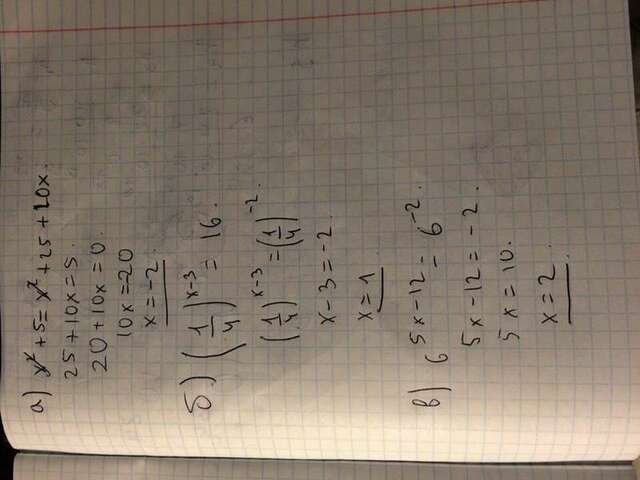 а) x² + 5 = x² + 25 + 10x.
25 + 10x = 5.
20 + 10x = 0.
10x = -20
x = -2.
б) (1/4)^(x-3) = 16.
(1/4)^(x-3) = (1/4)^(-2).
x - 3 = -2.
x = 1
в) 6^(5x-12) = 6^(-2).
5x - 12 = -2.
5x = 10.
x = 2.